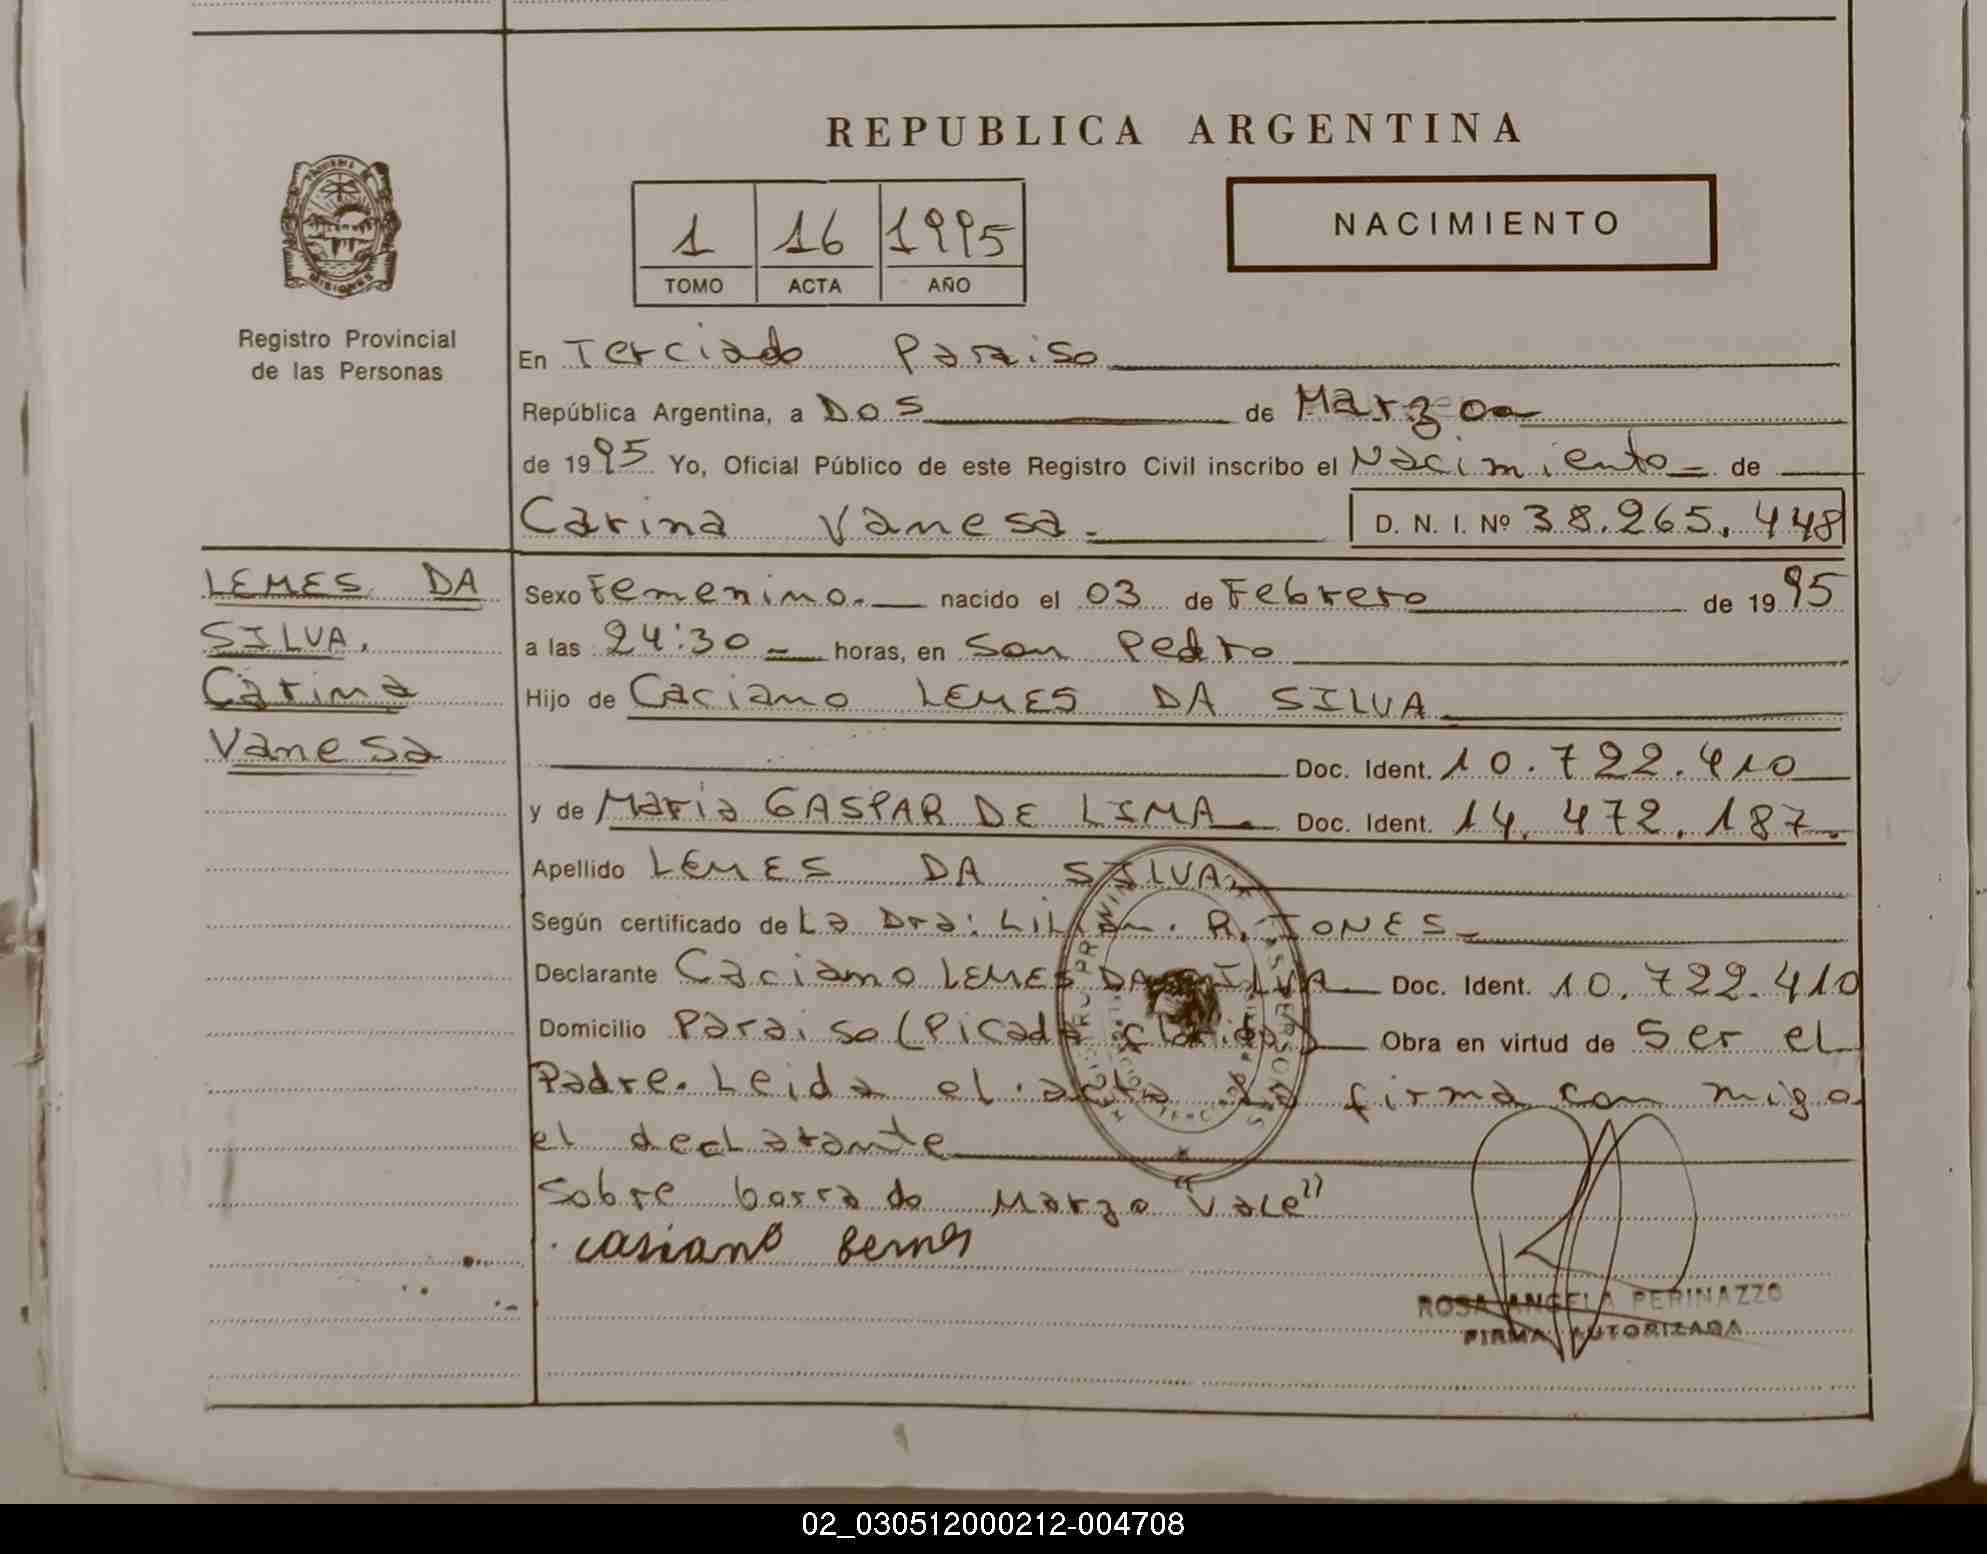 REPUBLICA ARGENTINA
NACIMIENTO
1 16 1995
TOMO ACTA AÑO
MISIONES
Registro Provincial
de las Personas
En Terciado Paraiso
República Argentina, a Dos de Marzo
de 1995 Yo, Oficial Público de este Registro Civil inscribo el Nacimiento de
Carina Vanesa.
D. N. I. Nº 38.265.448
LEMES DA
SILVA.
Carina
Vanesa
Sexo Femenino. nacido el 03 de Febrero de 1995
a las 24:30 horas, en San Pedro
Hijo de Caciano LEMES DA SILVA
Doc. Ident. 10.722.410
y de Maria GASPAR DE LIMA. Doc. Ident. 14.472.187.
Apellido LEMES DA SILVA
Según certificado de La Dra: Lilian. R. JONES
Declarante Caciano LEMES DA SILVA Doc. Ident. 10.722.410
Domicilio Paraiso (Picada) Obra en virtud de Ser el
Padre. Leida el acta La firma con migo
el declarante
Sobre borrado Marzo "Vale"
casiano
ROSA ANGELA PERINAZZO
FIRMA AUTORIZADA
02_030512000212-004708